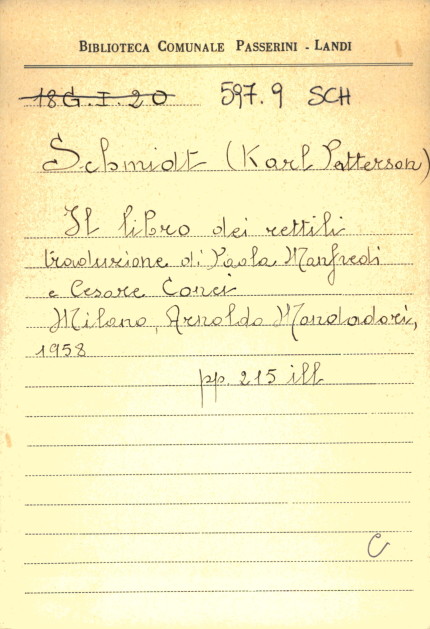 BIBLIOTECA COMUNALE PASSERINI - LANDI
18 G. I. 20 597.9 SCH
Schmidt (Karl Patterson)
Il libro dei rettili
traduzione di Paola Manfredi
e Cesare Conci
Milano, Arnoldo Mondadori,
1958
pp. 215 ill
C